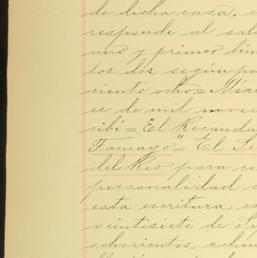 de dicha casa, c
responde al sal
uno y primer bim
tos dos según pa
ciento ocho = Méxi
ce de mil novec
cibí = El Recauda
Tamayo" = El Se
del Rio para co
personalidad c
esta escritura es
veintisiete de S
ochocientos ochen